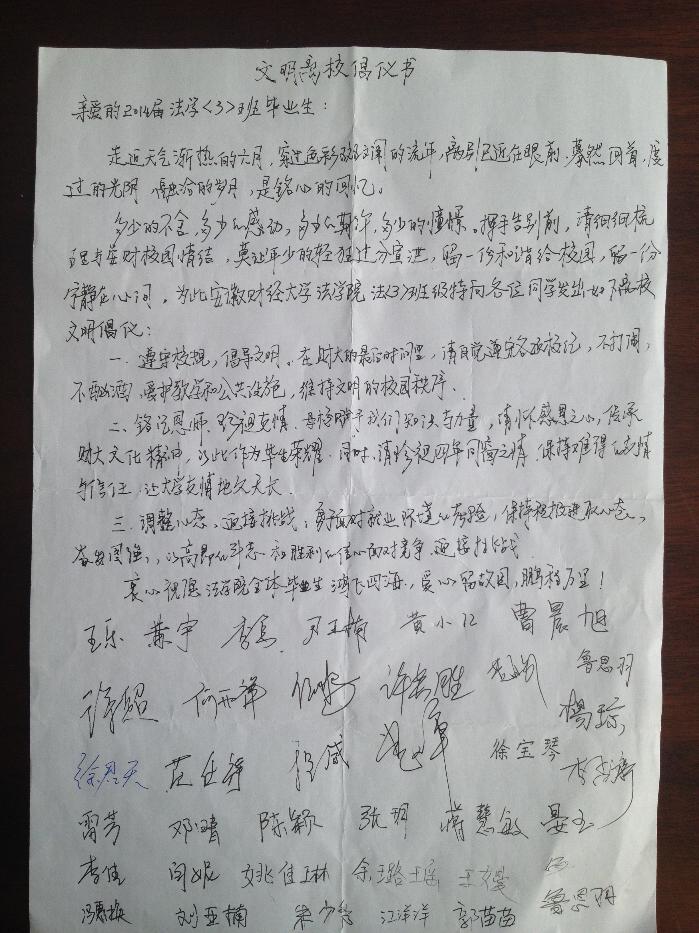 文明离校倡仪书
亲爱的2014届法学<3>班毕业生：
走近天气渐热的六月，穿过色彩斑斓的流年，离别已近在眼前，蓦然回首，度
过的光阴，融洽的岁月，是铭心的回忆。
多少的不舍，多少的感动，多少的期许，多少的憧憬。挥手告别前，请细细梳
理与安财校园情结，莫让年少的轻狂过分宣泄，留一份和谐给校园，留一份
宁静在心间，为此安徽财经大学法学院法<3>班级特向各位同学发出如下离校
文明倡仪：
一、遵守校规，倡导文明。在财大的最后时间里，请自觉遵守各项校纪，不打闹，
不酗酒，爱护教学和公共设施，维持文明的校园秩序。
二、铭记恩师、珍视友情。母校赋予我们知识与力量，请怀感恩之心，传承
财大文化精神，以此作为毕生荣耀。同时，请珍视四年同窗之情，保持难得的友情
与信任，让大学友情地久天长。
三、调整心态，迎接挑战。勇于面对就业环境的考验，保持积极进取心态，
奋发图强，以高昂的斗志和胜利的信心面对竞争、迎接挑战。
衷心祝愿法学院全体毕业生鸿飞四海，爱心留故园，鹏程万里！
王乐 黄宇 李 尹王楠 黄小江 曹晨旭
徐超 何 许 胜 鲁思羽
杨琼
徐 天 范仕 程 徐宝琴 李
雷芳 邓晴 陈颖 张玥 蒋慧敏 晏玉
李佳 闫妮 姚佳林 余璐瑶 王文雯
冯惠 刘亚楠 朱少 江洋洋 郭苗苗 鲁思玥